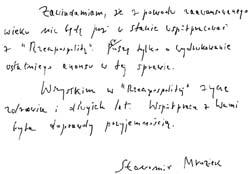 Zawiadamiam, że z powodu zaawansowanego
wieku nie będę już w stanie współpracować
z "Rzeczpospolitą". Proszę tylko o wydrukowanie
ostatniego anonsu w tej sprawie.
Wszystkim w "Rzeczpospolitej" życzę
zdrowia i długich lat. Współpraca z Wami
była doprawdy przyjemnością.
Sławomir Mrożek